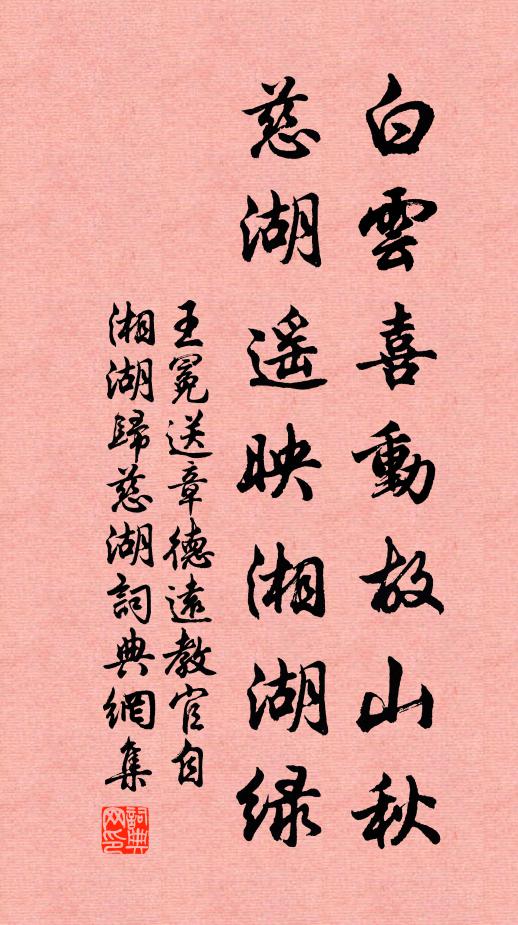 白雲喜動故山秋
慈湖遥映湘湖绿
王冕送章德遠教官自
湘湖歸慈湖詞典網集
詞典
网印